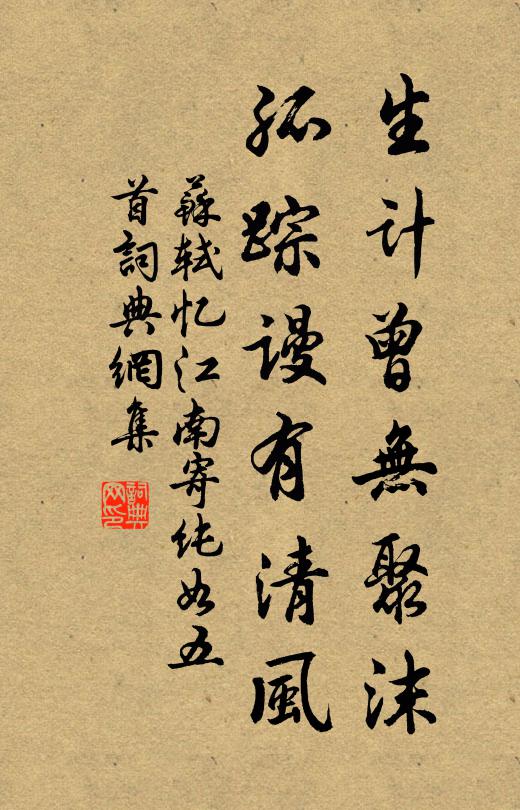 生计曾無聚沫
孤踪谩有清風
蘇轼忆江南寄纯如五
首詞典網集
詞典网印